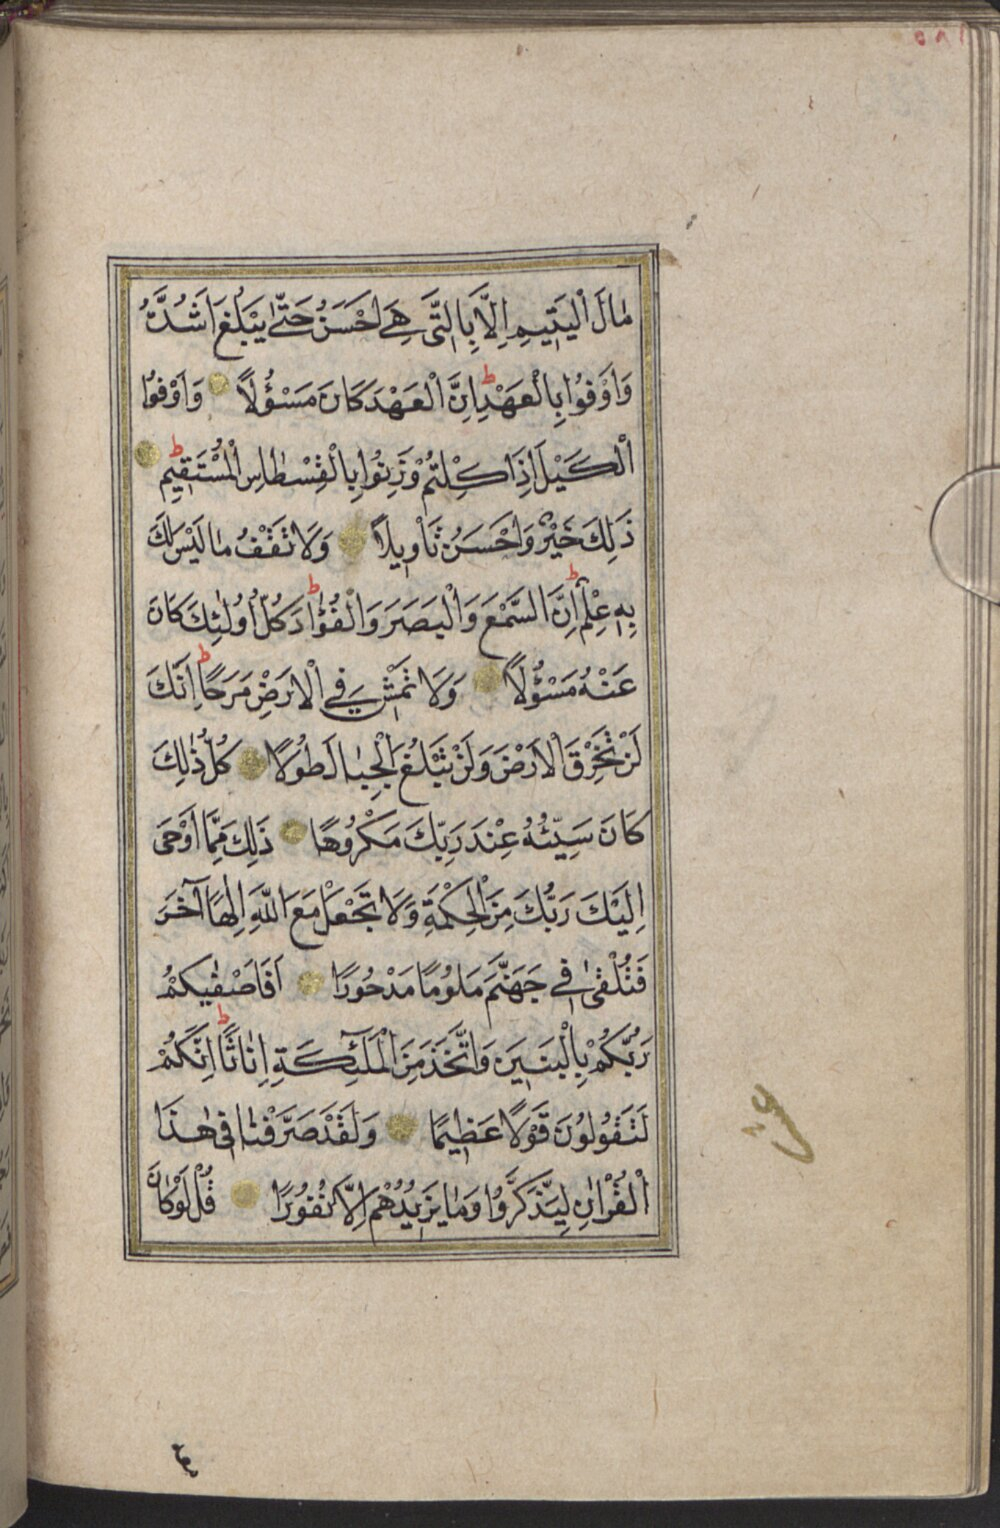 مَالَ الْيَتِيمِ اِلَّا بِالَّتِى هِىَ اَحْسَنُ حَتّٰى يَبْلُغَ اَشُدَّهُ
وَاَوْفُوا بِالْعَهْدِ ط اِنَّ الْعَهْدَ كَانَ مَسْؤُلًا وَاَوْفُوا
الْكَيْلَ اِذَا كِلْتُمْ وَزِنُوا بِالْقِسْطَاسِ الْمُسْتَقِيمِ ط
ذَلِكَ خَيْرٌ وَاَحْسَنُ تَاْوِيلًا وَلَا تَقْفُ مَا لَيْسَ لَكَ
بِهِ عِلْمٌ ط اِنَّ السَّمْعَ وَالْبَصَرَ وَالْفُؤٰادَ ط كُلُّ اُولٰئِكَ كَانَ
عَنْهُ مَسْؤُلًا وَلَا تَمْشِ فِى الْاَرْضِ مَرَحًا ط اِنَّكَ
لَنْ تَخْرِقَ الْاَرْضَ وَلَنْ تَبْلُغَ الْجِبَالَ طُولًا كُلُّ ذٰلِكَ
كَانَ سَيِّئُهُ عِنْدَ رَبِّكَ مَكْرُوهًا ذَلِكَ مِمَّا اَوْحَى
اِلَيْكَ رَبُّكَ مِنَ الْحِكْمَةِ وَلَا تَجْعَلْ مَعَ اللّٰهِ اِلٰهًا آخَرَ
فَتُلْقٰى فِى جَهَنَّمَ مَلُومًا مَدْحُورًا اَفَاَصْفٰيكُمْ
رَبُّكُمْ بِالْبَنِينَ وَاتَّخَذَ مِنَ الْمَلٰٓئِكَةِ اِنَاثًا ط اِنَّكُمْ
لَتَقُولُونَ قَوْلًا عَظِيمًا وَلَقَدْ صَرَّفْنَا فِى هٰذَا
الْقُرْاٰنِ لِيَذَّكَّرُوا وَمَا يَزِيدُهُمْ اِلَّا نُفُورًا قُلْ لَوْ كَانَ